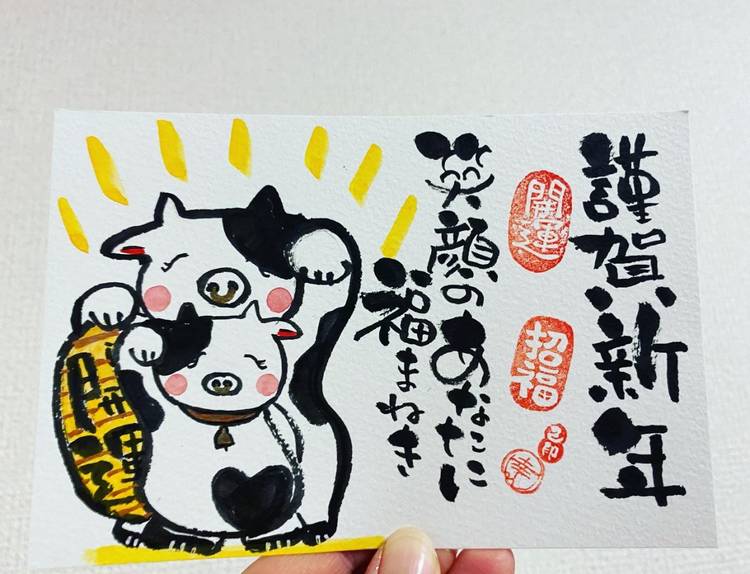 謹賀新年
開運
招福
笑顔のあなたに
福まねき
開運